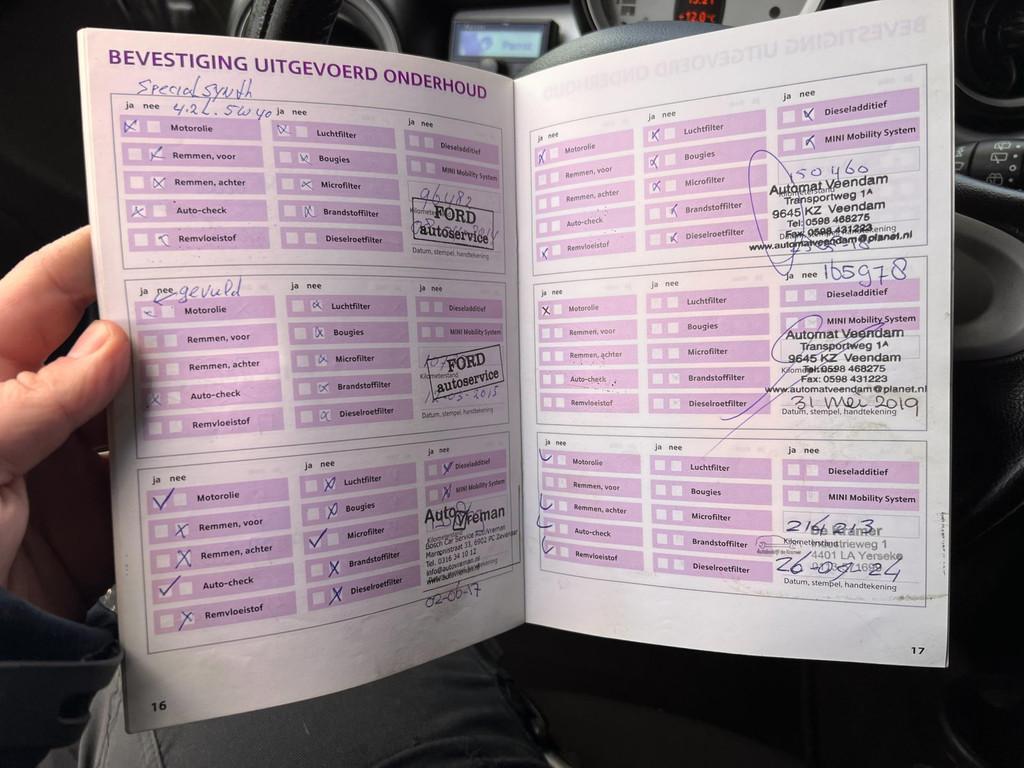 BEVESTIGING UITGEVOERD ONDERHOUD
Special Synth
4.2L. 5W40
ja nee
Motorolie
Remmen, voor
Remmen, achter
Auto-check
Remvloeistof
ja nee
Luchtfilter
Bougies
Microfilter
Brandstoffilter
Dieselroetfilter
ja nee
Dieseladditief
MINI Mobility System
FORD
autoservice
Datum, stempel, handtekening
ja nee
gevuld
Motorolie
Remmen, voor
Remmen, achter
Auto-check
Remvloeistof
ja nee
Luchtfilter
Bougies
Microfilter
Brandstoffilter
Dieselroetfilter
ja nee
Dieseladditief
MINI Mobility System
FORD
autoservice
Datum, stempel, handtekening
ja nee
Motorolie
Remmen, voor
Remmen, achter
Auto-check
Remvloeistof
ja nee
Luchtfilter
Bougies
Microfilter
Brandstoffilter
Dieselroetfilter
ja nee
Dieseladditief
MINI Mobility System
Auto Vreman
Bosch Car Service
Tel. 0316 34 10 12
02-06-17
16
ja nee
Motorolie
Remmen, voor
Remmen, achter
Auto-check
Remvloeistof
ja nee
Luchtfilter
Bougies
Microfilter
Brandstoffilter
Dieselroetfilter
ja nee
Dieseladditief
MINI Mobility System
150 460
Automat Veendam
Transportweg 1A
9645 KZ Veendam
Tel: 0598 468275
Fax: 0598 431223
www.automatveendam@planet.nl
ja nee
Motorolie
Remmen, voor
Remmen, achter
Auto-check
Remvloeistof
ja nee
Luchtfilter
Bougies
Microfilter
Brandstoffilter
Dieselroetfilter
ja nee
165978
Dieseladditief
MINI Mobility System
Automat Veendam
Transportweg 1A
9645 KZ Veendam
Tel: 0598 468275
Fax: 0598 431223
www.automatveendam@planet.nl
31 MEI 2019
Datum, stempel, handtekening
ja nee
Motorolie
Remmen, voor
Remmen, achter
Auto-check
Remvloeistof
ja nee
Luchtfilter
Bougies
Microfilter
Brandstoffilter
Dieselroetfilter
ja nee
Dieseladditief
MINI Mobility System
216213
Kramer
4401 LA Yerseke
Datum, stempel, handtekening
17
+12.0°C